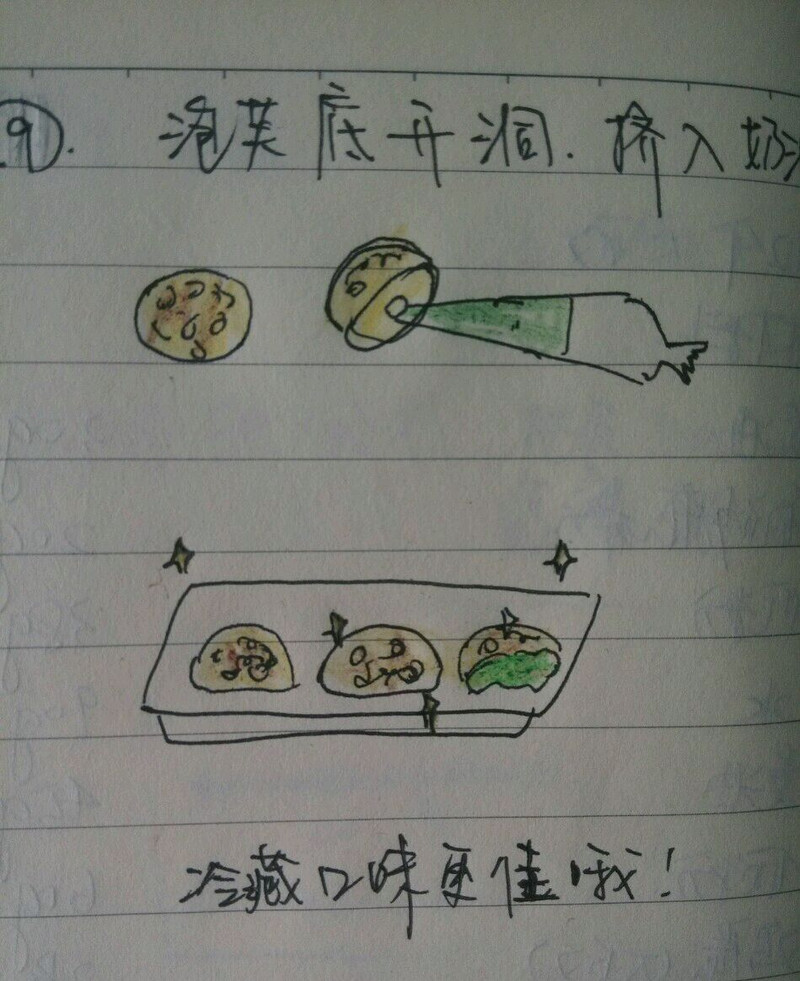 ⑨. 泡芙底开洞.挤入奶
冷藏口味更佳哦!